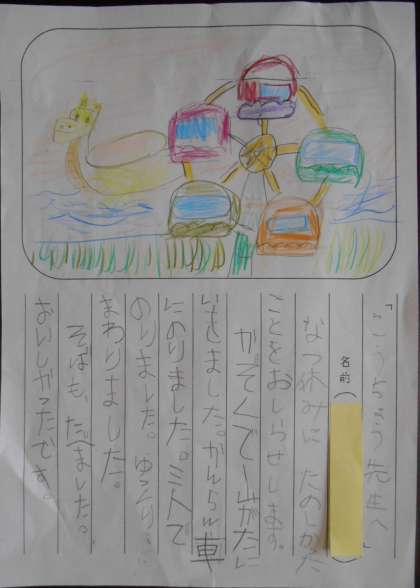 「こうちょう先生へ」
名前（　）
なつ休みに たのしかた
ことをおしらせします。
かぞくで
いきました。かんらん車
にのりました。ミ人で
のりました。ゆっくり
まわりました。
そばも、たべました。
おいしかったです。